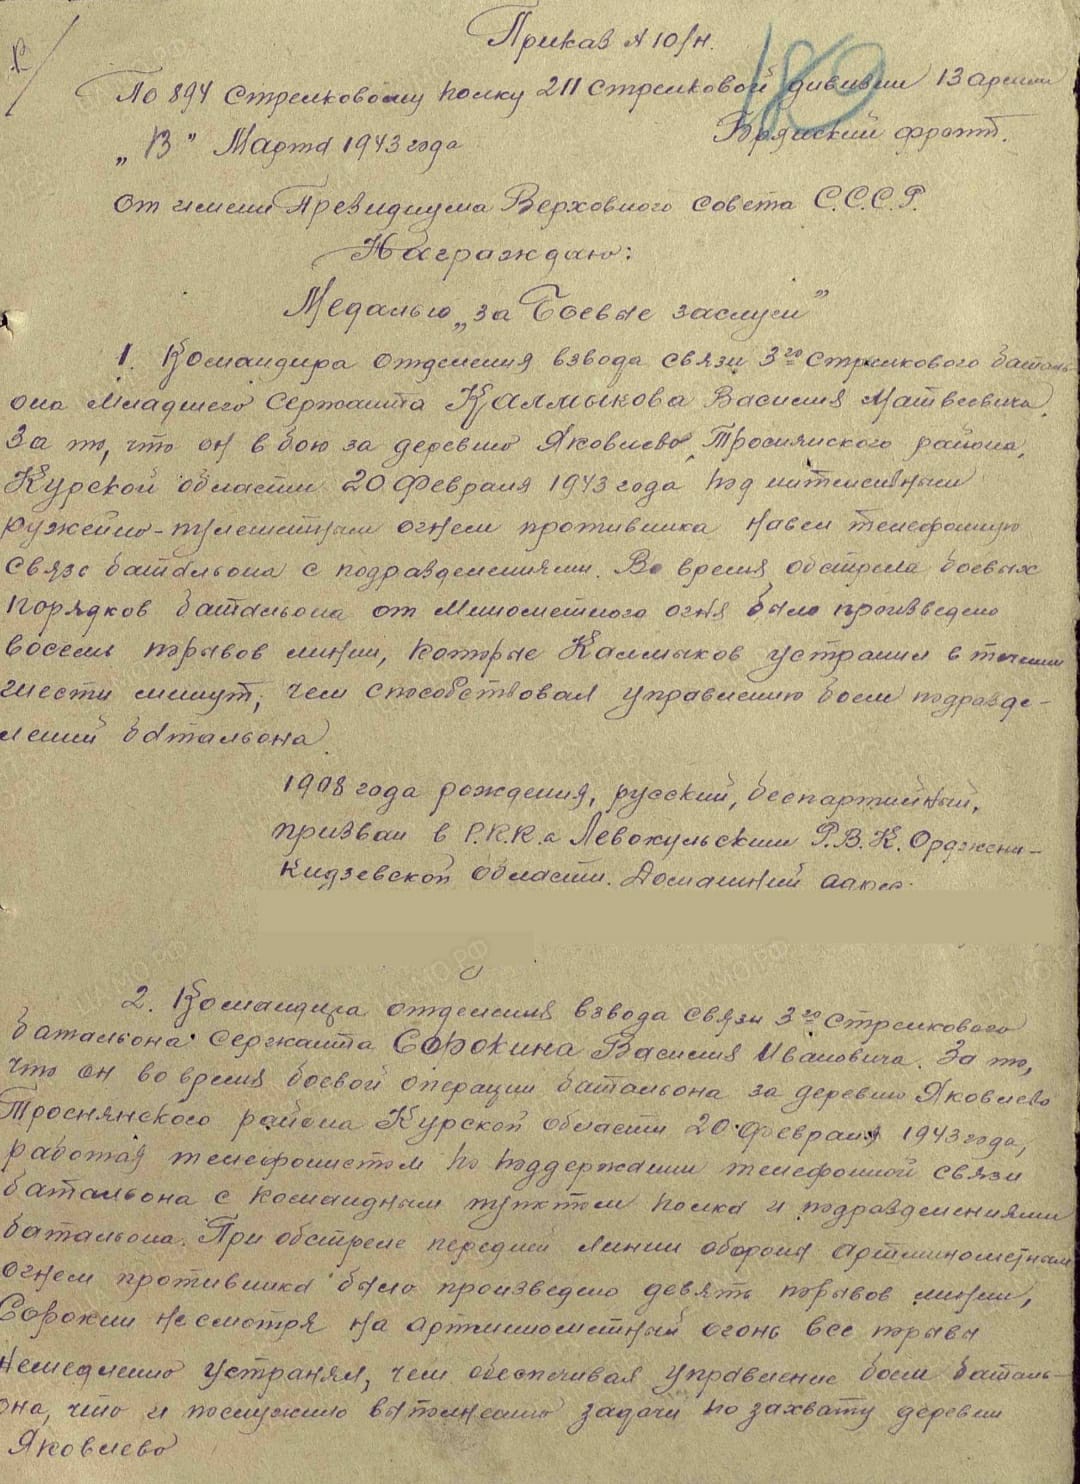 Приказ № 10/н.
189
По 894 стрелковому полку 211 стрелковой дивизии 13 армии
„13” Марта 1943 года Брянский фронт.
от имени Президиума Верховного совета С.С.С.Р.
Награждаю:
Медалью „за Боевые заслуги”
1. Командира отделения взвода связи 3го стрелкового баталь-
она Младшего Сержанта Калмыкова Василия Матвеевича.
За то, что он в бою за деревню Яковлево, Троснянского района,
Курской области 20 февраля 1943 года под интенсивным
ружейно-пулеметным огнем противника навел телефонную
связь батальона с подразделениями. Во время обстрела боевых
порядков батальона от Минометного огня было произведено
восемь порывов линии, которые Калмыков устранил в течении
шести минут, чем способствовал управлению боем подразде-
лений батальона.
1908 года рождения, русский, беспартийный,
призван в Р.К.К.а Левокумским Р.В.К. Орджони-
кидзевской области. Домашний адрес.
2. Командира отделения взвода связи 3го стрелкового
батальона Сержанта Сорокина Василия Ивановича. За то,
что он во время боевой операции батальона за деревню Яковлево
Троснянского района Курской области 20 февраля 1943 года,
работая телефонистом по поддержании телефонной связи
батальона с командным пунктом полка и подразделениями
батальона. При обстреле передней линии обороны артминометным
огнем противника было произведено девять порывов линии,
Сорокин несмотря на артминометный огонь все порывы
немедленно устранял, чем обеспечивая управление боем баталь-
она, что и послужило выполнению задачи по захвату деревни
Яковлево